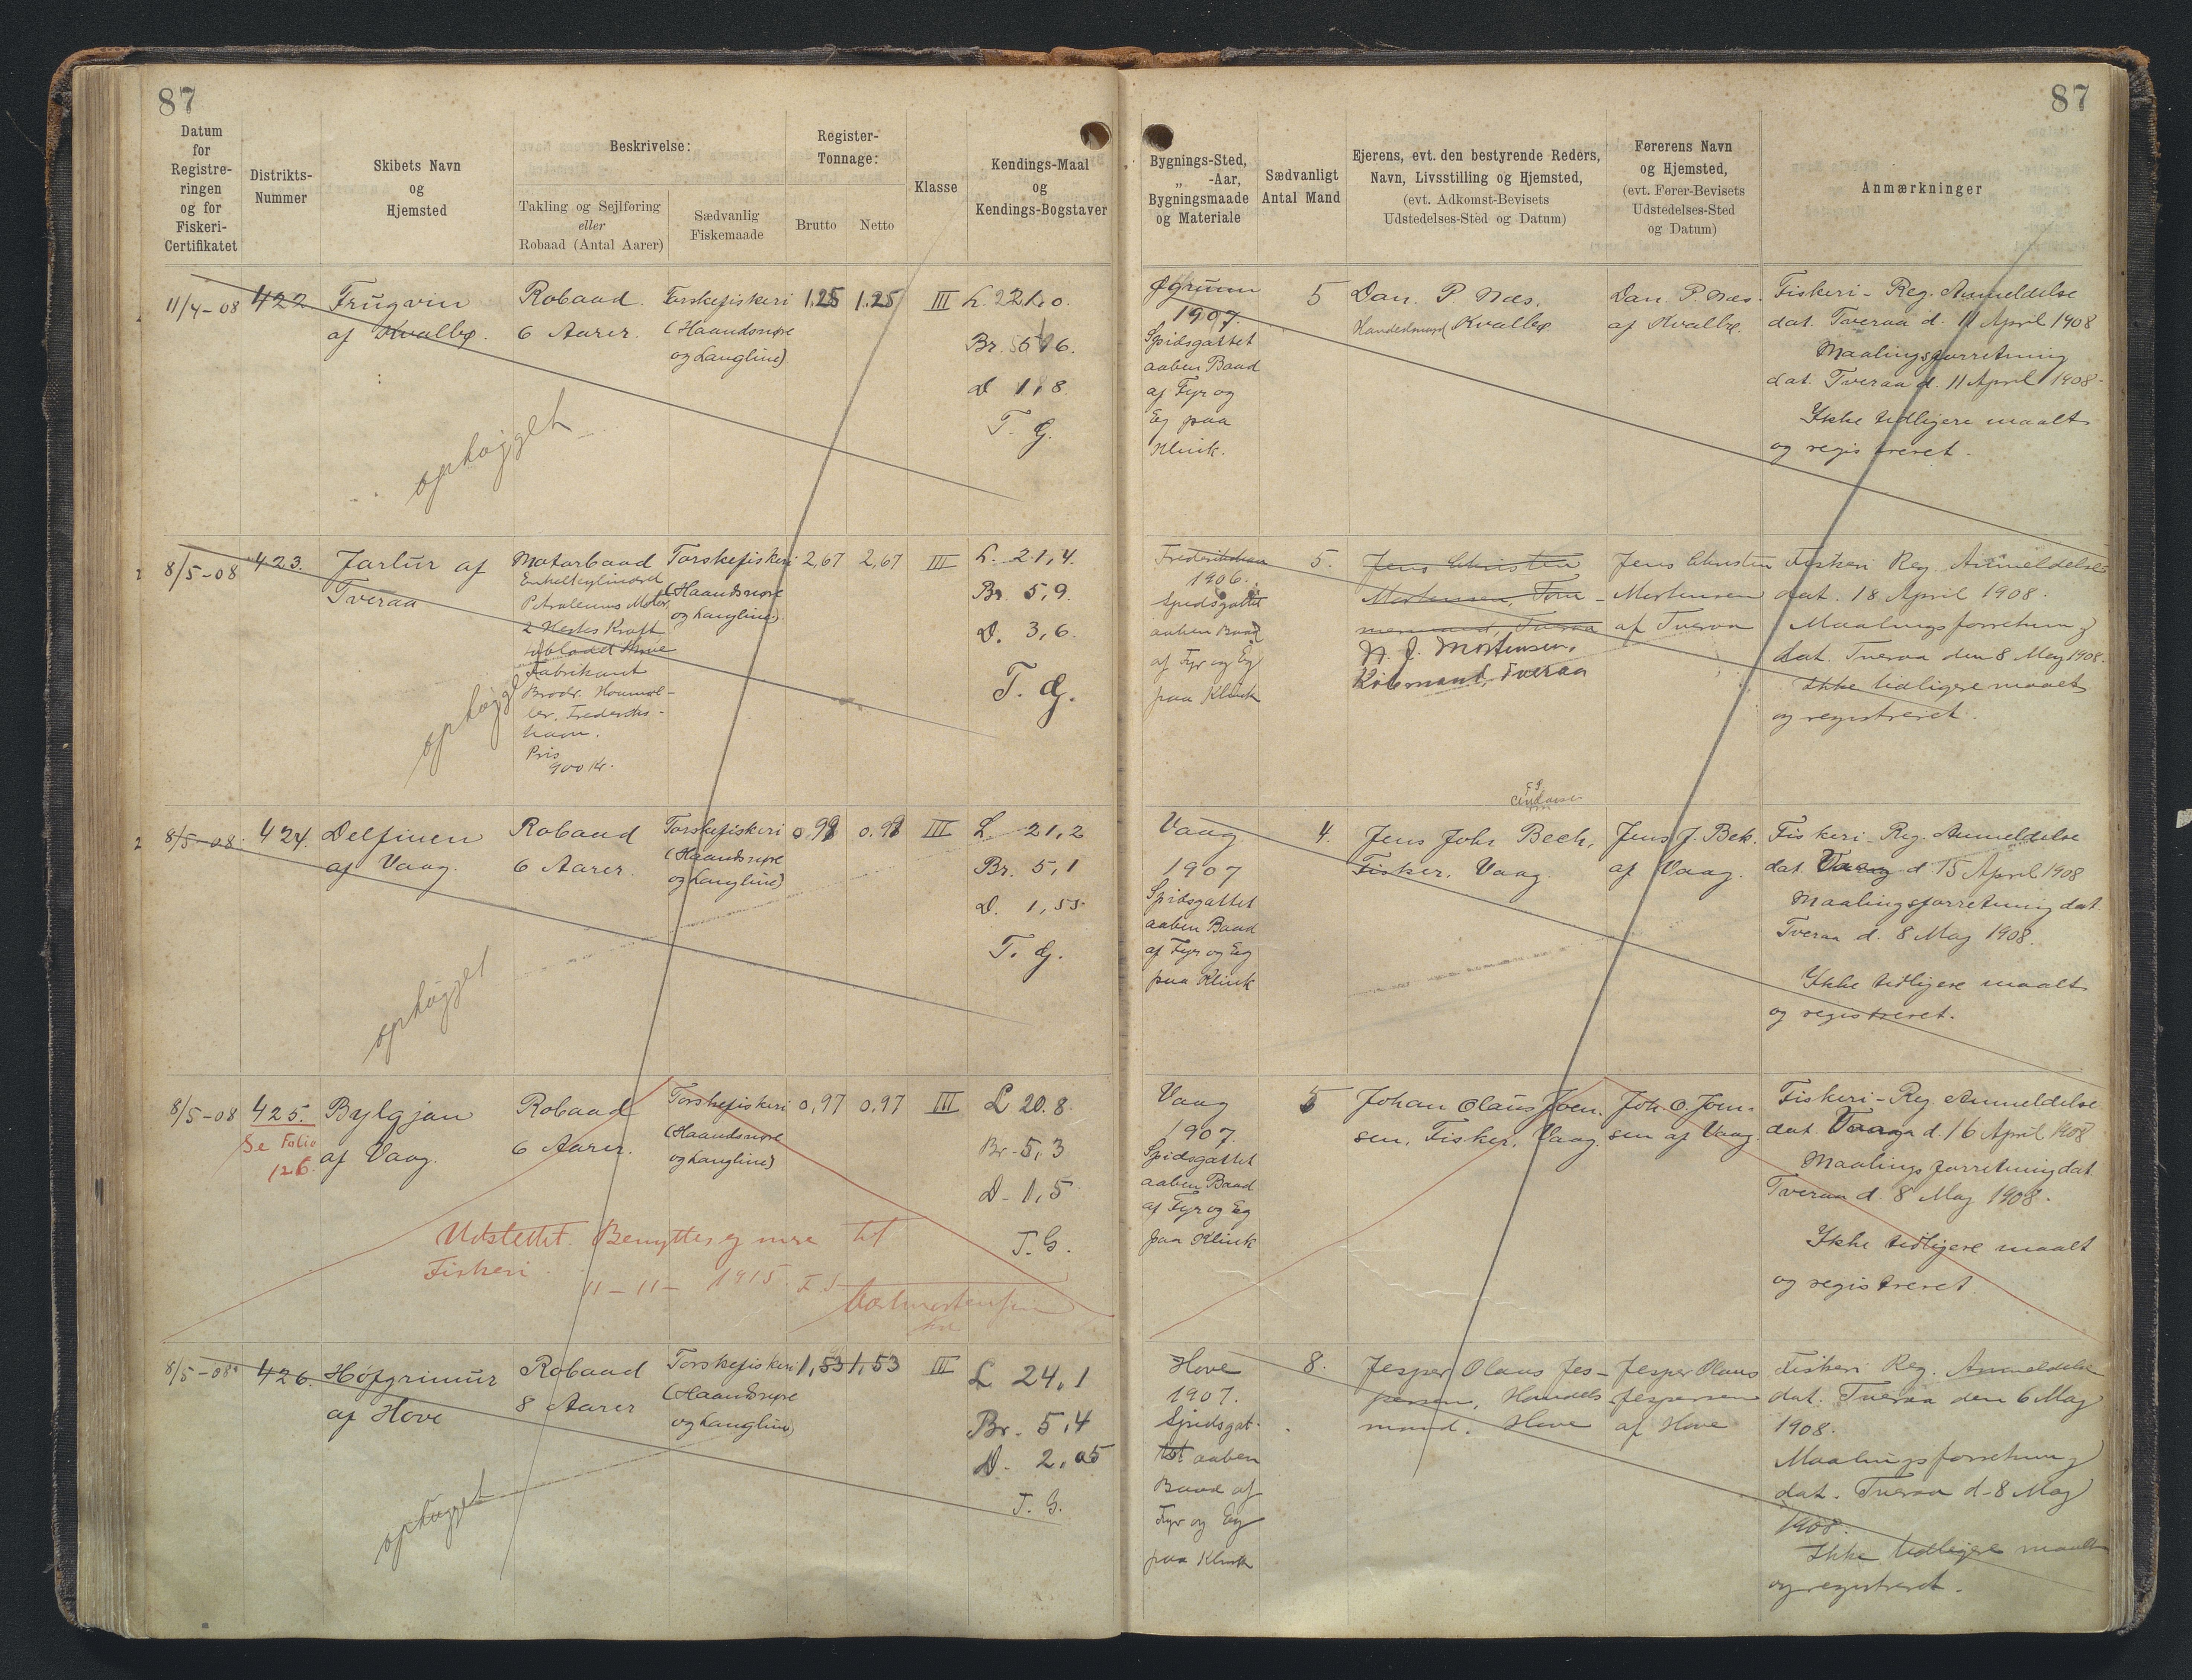 87
Datum
for
Registre-
ringen
og for
Fiskeri-
Certifikatet
Distrikts-
Nummer
Skibets Navn
og
Hjemsted
Beskrivelse:
Takling og Sejlføring
eller
Robaad (Antal Aarer)
Sædvanlig
Fiskemaade
Register-
Tonnage:
Brutto
Netto
Klasse
Kendings-Maal
og
Kendings-Bogstaver
87
Bygnings-Sted,
„ -Aar,
Bygningsmaade
og Materiale
Sædvanligt
Antal Mand
Ejerens, evt. den bestyrende Reders,
Navn, Livsstilling og Hjemsted,
(evt. Adkomst-Bevisets
Udstedelses-Sted og Datum)
Førerens Navn
og Hjemsted,
(evt. Fører-Bevisets
Udstedelses-Sted
og Datum)
Anmærkninger
11/4-08
422
Frugvin
af Kvalbø.
Robaad
6 Aarer.
Torskefiskeri
(Haandsnøre
og Langline)
1,25
1,25
III
L. 22,0
Br. 5,6
D 1,8
T. G.
ophøgget
1907.
Spidsgattet
aaben Baad
af Fyr og
Eg paa
Klink.
5
Dan. P. Næs.
Handelsmand Kvalbø
Dan. P. Næs.
af Kvalbø.
Fiskeri-Reg. Anmeldelse
dat. Tveraa d. 11 April 1908
Maalingsforretning
dat. Tveraa d. 11 April 1908-
Ikke tidligere maalt
og registreret.
8/5-08
423.
Jarlur af
Tveraa
Motorbaad
Enkeltcylindret
Petroleums Motor
2 Hestes Kraft
Fabrikant
Brodr. Houmøl-
ler. Frederiks-
havn.
Pris
900 Kr.
Torskefiskeri
(Haandsnøre
og Langline)
2,67
2,67
III
L. 21,4.
Br. 5,9.
D. 3,6.
T. G.
ophøgget
Frederikshavn
1906.
Spidsgattet
aaben Baad
af Fyr og Eg
paa Klink
5.
Jens Christen
Mortensen, Tøm-
mermand, Tveraa
N. J. Mortensen,
Købmand, Tveraa
Jens Christen
Mortensen
af Tveraa
Fiskeri Reg. Anmeldelse
dat. 18 April 1908.
Maalingsforretning
dat. Tveraa den 8 May 1908.
Ikke tidligere maalt
og registreret.
8/5-08
424.
Delfinen
af Vaag.
Robaad
6 Aarer.
Torskefiskeri
(Haandsnøre
og Langline)
0,98
0,98
III
L. 21,2
Br. 5,1
D. 1,55
T. G.
ophøgget
Vaag
1907
Spidsgattet
aaben Baad
af Fyr og Eg
paa Klink
4.
Jens Johs Bech,
Fisker, Vaag.
Jens J. Bek.
af Vaag.
Fiskeri-Reg. Anmeldelse
dat. Vaag d. 15 April 1908
Maalingsforretning dat.
Tveraa d. 8 May 1908.
Ikke tidligere maalt
og registreret.
8/5-08
425.
Se Folio
126.
Bylgjan
af Vaag.
Robaad
6 Aarer.
Torskefiskeri
(Haandsnøre
og Langline)
0,97
0,97
III
L 20.8
Br-5,3
D-1,5
T. G.
Udslettet. Benyttes ej mere til
Fiskeri.
11-11-1915.
Vaag
1907.
Spidsgattet
aaben Baad
af Fyr og Eg
paa Klink
5
Johan Olaus Joen-
sen, Fisker, Vaag.
Joh. O. Joen-
sen af Vaag
Fiskeri-Reg. Anmeldelse
dat. Vaag d. 16 April 1908
Maalingsforretning dat.
Tveraa d. 8 May 1908.
Ikke tidligere maalt
og registreret
8/5-08
426.
Høfgrimur
af Hove
Robaad
8 Aarer
Torskefiskeri
(Haandsnøre
og Langline)
1,53
1,53
III
L 24,1
Br. 5,4
D- 2,05
T. G.
ophøgget
Hove
1907.
Spidsgat-
tet aaben
Baad af
Fyr og Eg
paa Klink
8.
Jesper Olaus Jes-
persen, Handels
mand. Hove
Jesper Olaus
Jespersen
af Hove
Fiskeri Reg. Anmeldelse
dat. Tveraa den 6 May
1908.
Maalingsforretning
dat. Tveraa d. 8 May
1908.
Ikke tidligere maalt
og registreret.